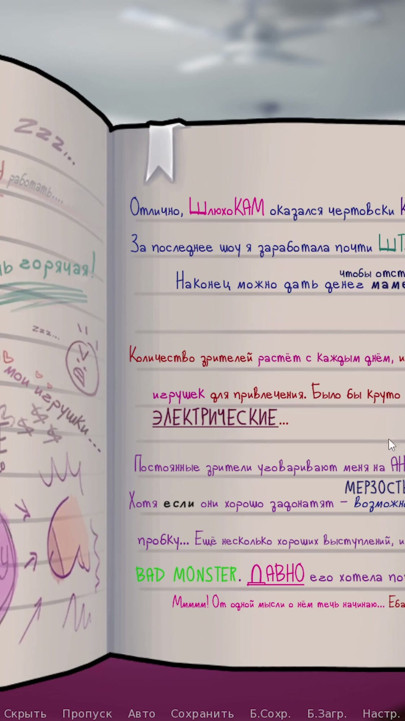 zzz...
работать...
горячая!
zzz...
мои игрушки...
Отлично, ШлюхоКАМ оказался чертовски
За последнее шоу я заработала почти
чтобы отст
Наконец можно дать денег маме
Количество зрителей растёт с каждым днём, и
игрушек для привлечения. Было бы круто
ЭЛЕКТРИЧЕСКИЕ...
Постоянные зрители уговаривают меня на АН
МЕРЗОСТЬ
Хотя если они хорошо задонатят – возможн
пробку... Ещё несколько хороших выступлений, и
BAD MONSTER. ДАВНО его хотела по
Мммм! От одной мысли о нём течь начинаю... Еба
Скрыть Пропуск Авто Сохранить Б.Сохр. Б.Загр. Настр.